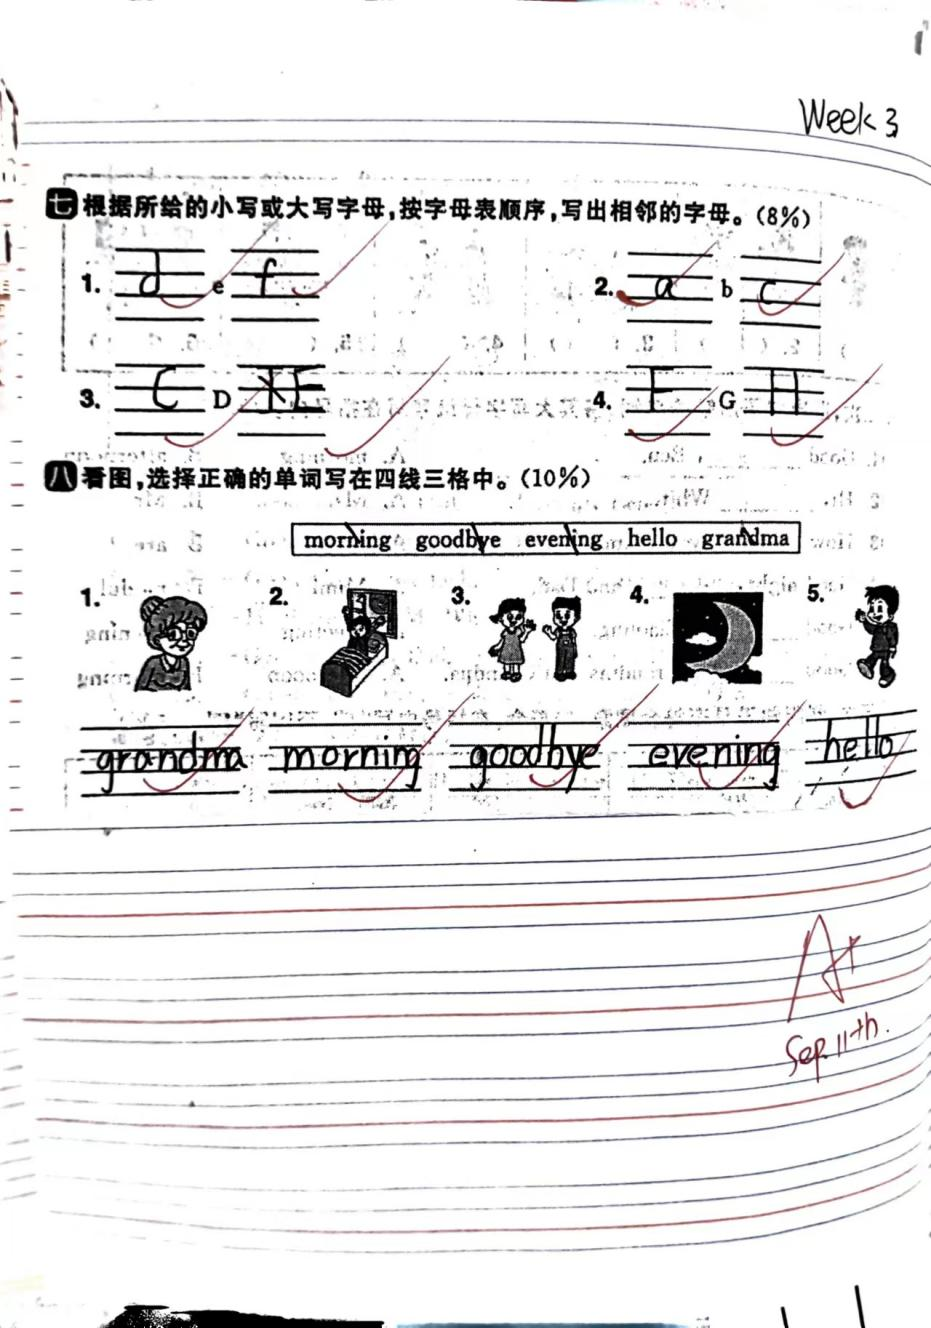 Week 3
七 根据所给的小写或大写字母,按字母表顺序,写出相邻的字母。(8%)
1. d e f 2. a b c
3. C D E 4. F G H
八 看图,选择正确的单词写在四线三格中。(10%)
morning goodbye evening hello grandma
1. 2. 3. 4. 5.
grandma morning goodbye evening hello
A+
Sep. 11th.